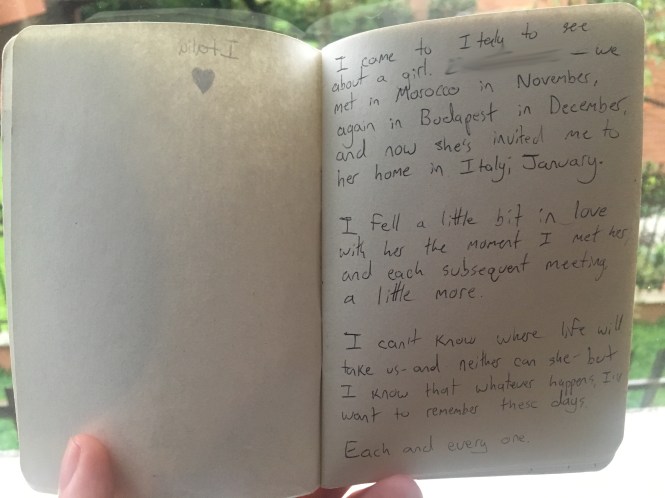 Italia
I came to Italy to see
about a girl. — we
met in Morocco in November,
again in Budapest in December,
and now she's invited me to
her home in Italy; January.
I fell a little bit in love
with her the moment I met her,
and each subsequent meeting,
a little more.
I can't know where life will
take us - and neither can she - but
I know that whatever happens, I'll
want to remember these days.
Each and every one.